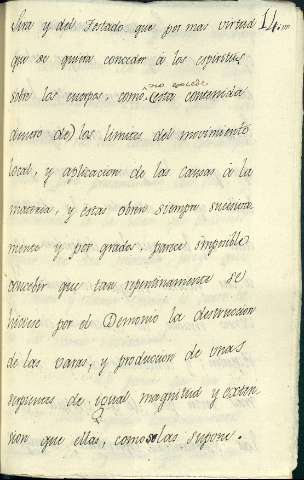 14.
Sira y del Testado que por mas virtud
que se quiera conceder à los espiritus
sobre los cuerpos, como no excede (està contenida
dentro de) los limites del movimiento
local, y aplicacion de las causas à la
materia, y éstas obren siempre sucesiva
mente y por grados, parece imposible
concebir que tan repentinamente se
hiciese por el Demonio la destruccion
de las varas, y produccion de unas
serpientes de igual magnitud y exten
sion que ellas, como las supone.